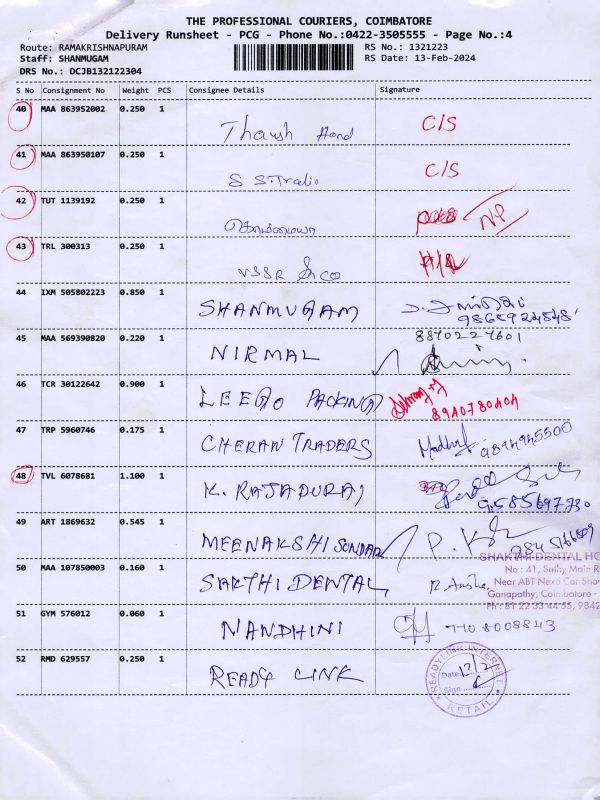 THE PROFESSIONAL COURIERS, COIMBATORE
Delivery Runsheet - PCG - Phone No.:0422-3505555 - Page No.:4
Route: RAMAKRISHNAPURAM
RS No.: 1321223
Staff: SHANMUGAM
RS Date: 13-Feb-2024
DRS No.: DCJB132122304
S No Consignment No Weight PCS Consignee Details Signature
40 MAA 863952002 0.250 1
C/S
41 MAA 863950107 0.250 1
C/S
42 TUT 1139192 0.250 1
NP
43 TRL 300313 0.250 1
VSSR & CO
44 IXM 505802223 0.850 1
SHANMUGAM
45 MAA 569390820 0.220 1
8870227601
NIRMAL
46 TCR 30122642 0.900 1
LEEGO PACKING
47 TRP 5960746 0.175 1
CHERAN TRADERS
48 TVL 6078681 1.100 1
K. RAJADURAI
9585697730
49 ART 1869632 0.545 1
MEENAKSHI SUNDAR
SHAKTHI DENTAL HO
50 MAA 107850003 0.160 1
No : 41, Sathy Main R
SAKTHI DENTAL
Near ABT Nexa Car Show
Ganapathy, Coimbatore -
Ph : 81 22 33 44 55, 9842
51 GYM 576012 0.060 1
NANDHINI 7708008843
52 RMD 629557 0.250 1
READY LINK
READYLINK INTERNET
Date 13/2
Sign
RETAIL